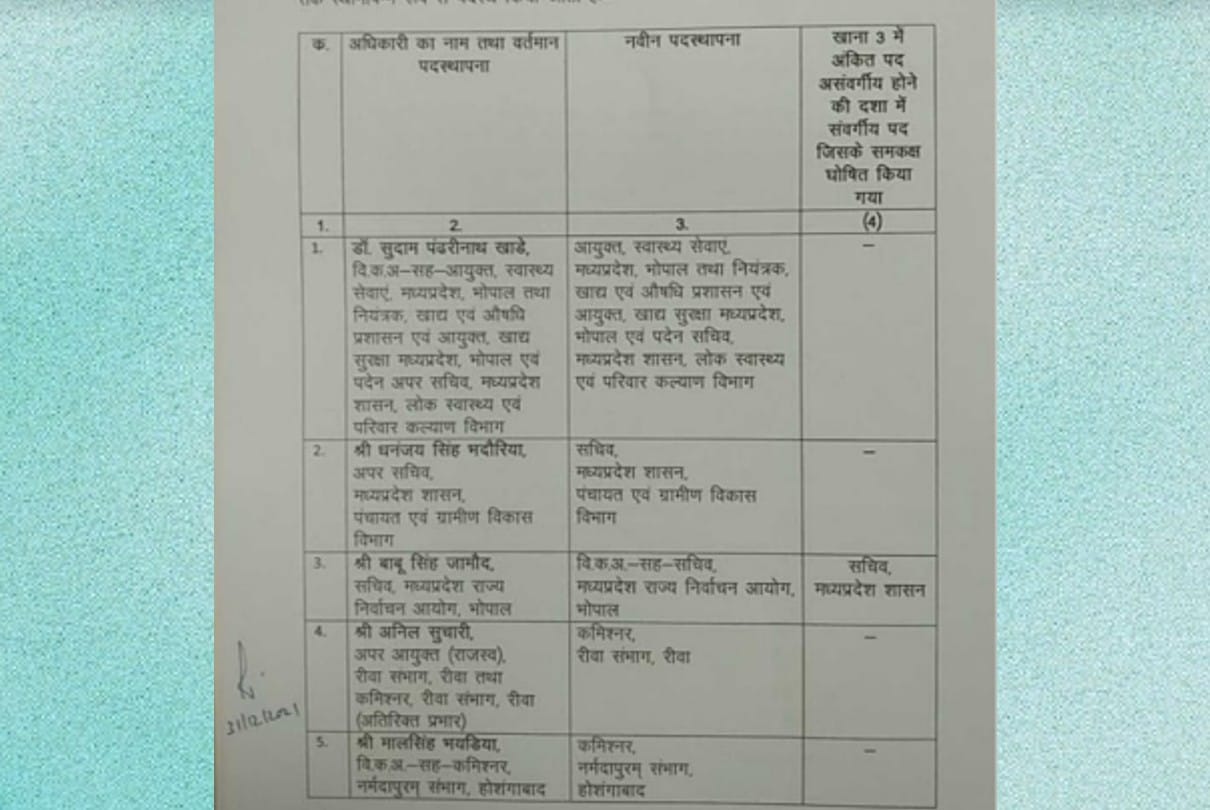 क. अधिकारी का नाम तथा वर्तमान पदस्थापना
नवीन पदस्थापना
खाना 3 में
अंकित पद
असंवर्गीय होने
की दशा में
संवर्गीय पद
जिसके समकक्ष
घोषित किया
गया
1. 2. 3. (4)
1. डॉ. सुदाम पंढरीनाथ खाडे,
वि.क.अ–सह–आयुक्त, स्वास्थ्य
सेवाएं, मध्यप्रदेश, भोपाल तथा
नियंत्रक, खाद्य एवं औषधि
प्रशासन एवं आयुक्त, खाद्य
सुरक्षा मध्यप्रदेश, भोपाल एवं
पदेन अपर सचिव, मध्यप्रदेश
शासन, लोक स्वास्थ्य एवं
परिवार कल्याण विभाग
आयुक्त, स्वास्थ्य सेवाएं,
मध्यप्रदेश, भोपाल तथा नियंत्रक,
खाद्य एवं औषधि प्रशासन एवं
आयुक्त, खाद्य सुरक्षा मध्यप्रदेश,
भोपाल एवं पदेन सचिव,
मध्यप्रदेश शासन, लोक स्वास्थ्य
एवं परिवार कल्याण विभाग
–
2. श्री धनंजय सिंह भदौरिया,
अपर सचिव,
मध्यप्रदेश शासन,
पंचायत एवं ग्रामीण विकास
विभाग
सचिव,
मध्यप्रदेश शासन,
पंचायत एवं ग्रामीण विकास
विभाग
–
3. श्री बाबू सिंह जामौद,
सचिव, मध्यप्रदेश राज्य
निर्वाचन आयोग, भोपाल
वि.क.अ.–सह–सचिव,
मध्यप्रदेश राज्य निर्वाचन आयोग,
भोपाल
सचिव,
मध्यप्रदेश शासन
4. श्री अनिल सुचारी,
अपर आयुक्त (राजस्व),
रीवा संभाग, रीवा तथा
कमिश्नर, रीवा संभाग, रीवा
(अतिरिक्त प्रभार)
कमिश्नर,
रीवा संभाग, रीवा
–
31/12/2021
5. श्री मालसिंह भयडिया,
वि.क.अ.–सह–कमिश्नर,
नर्मदापुरम् संभाग, होशंगाबाद
कमिश्नर,
नर्मदापुरम् संभाग,
होशंगाबाद
–